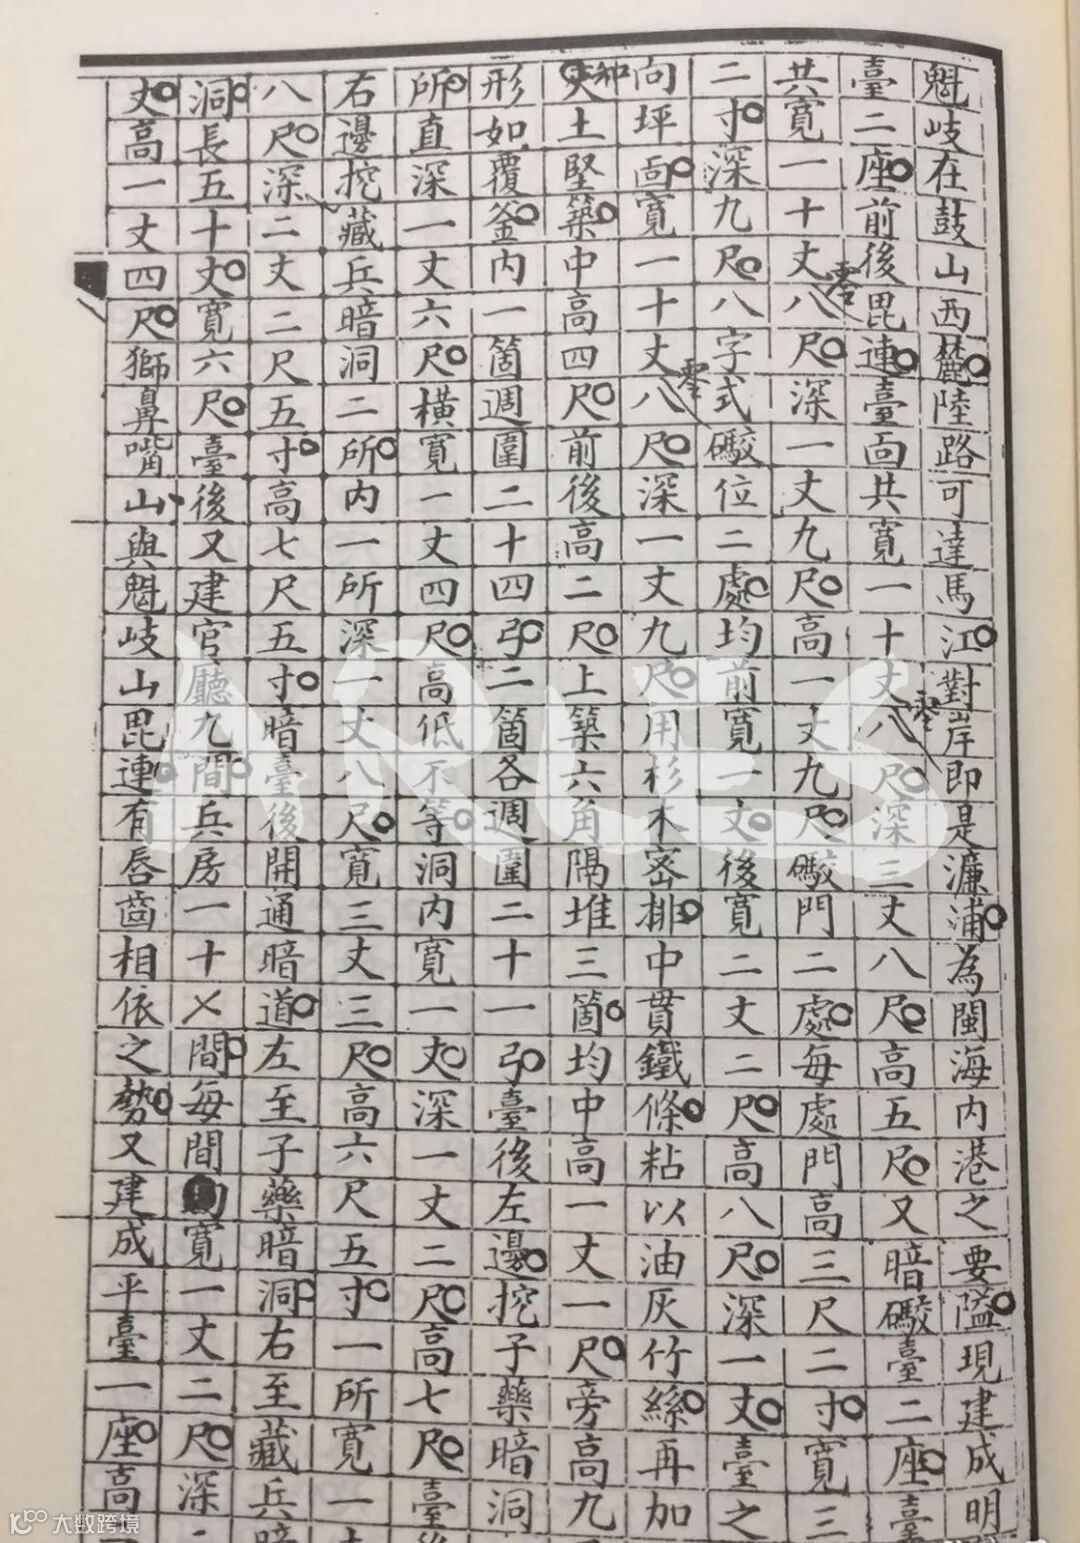 魁岐在鼓山西麓陸路可達馬江對岸即是濂浦為閩海内港之要隘現建成明
臺二座前後毘連臺面共寬一十丈零八尺深三丈八尺高五尺又暗礮臺二座臺
共寬一十丈零八尺深一丈九尺高一丈九尺礮門二處每處門高三尺二寸寬三
二寸深九尺八字式礮位二處均前寬一丈後寬二丈二尺高八尺深一丈臺之
向坪面寬一十丈零八尺深一丈九尺用杉木密排中貫鐵條粘以油灰竹絲再加
和土堅築中高四尺前後高二尺上築六角隔堆三箇均中高一丈一尺旁高九
形如覆釜内一箇週圍二十四弓二箇各週圍二十一弓臺後左邊挖子藥暗洞
所直深一丈六尺橫寬一丈四尺高低不等洞内寬一丈深一丈二尺高七尺臺
右邊挖藏兵暗洞二所内一所深一丈八尺寬三丈三尺高六尺五寸一所寬一
八尺深二丈二尺五寸高七尺五寸暗臺後開通暗道左至子藥暗洞右至藏兵
洞長五十丈寬六尺臺後又建官廳九間兵房一十㐅間每間寬一丈二尺深
丈高一丈四尺獅鼻嘴山與魁岐山毘連有唇齒相依之勢又建成平臺一座高
ARLES
大数跨境